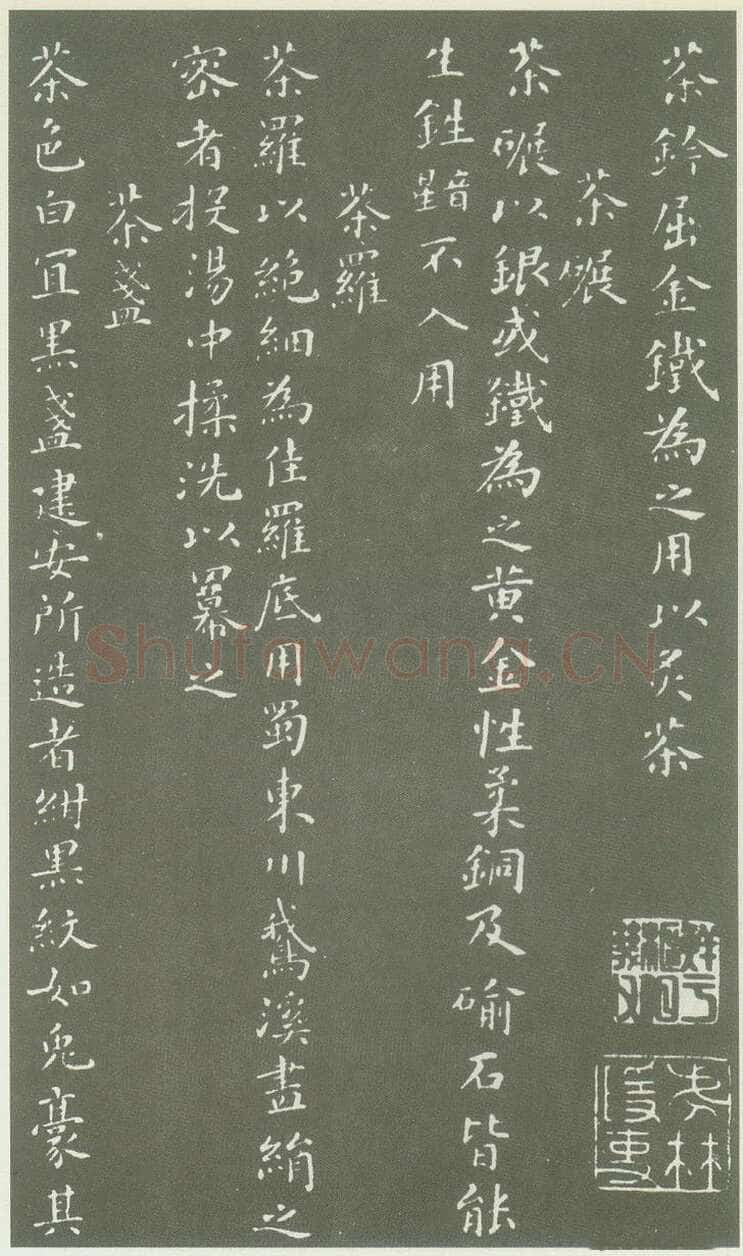 茶鈐屈金鐵為之用以炙茶
茶碾
茶碾以銀或鐵為之黃金性柔銅及石皆能
生鉎黯不入用
茶羅
茶羅以絕細為佳羅底用蜀東川鵝溪畫絹之
密者投湯中揉洗以冪之
茶盞
茶色白宜黑盞建安所造者紺黑紋如兔豪其
Shufawang.CN